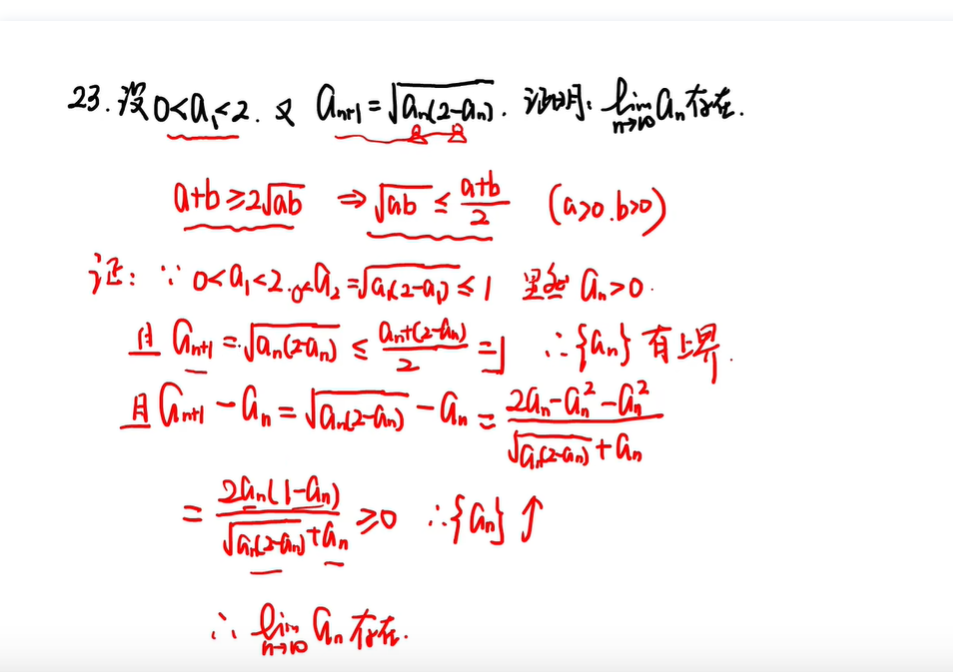 23. 设 0<a₁<2. 又 aₙ₊₁=√(aₙ(2-aₙ)). 证明: lim_{n→∞} aₙ 存在.
a+b≥2√(ab) ⇒ √(ab) ≤ (a+b)/2 (a>0.b>0)
证: ∵ 0<a₁<2. 0<a₂=√(a₁(2-a₁)) ≤ 1 显然 aₙ>0.
且 aₙ₊₁=√(aₙ(2-aₙ)) ≤ (aₙ+(2-aₙ))/2 =1 ∴{aₙ} 有上界.
且 aₙ₊₁-aₙ=√(aₙ(2-aₙ))-aₙ=(2aₙ-aₙ²-aₙ²)/(√(aₙ(2-aₙ))+aₙ)
=(2aₙ(1-aₙ))/(√(aₙ(2-aₙ))+aₙ) ≥0 ∴{aₙ}↑
∴ lim_{n→∞} aₙ 存在.